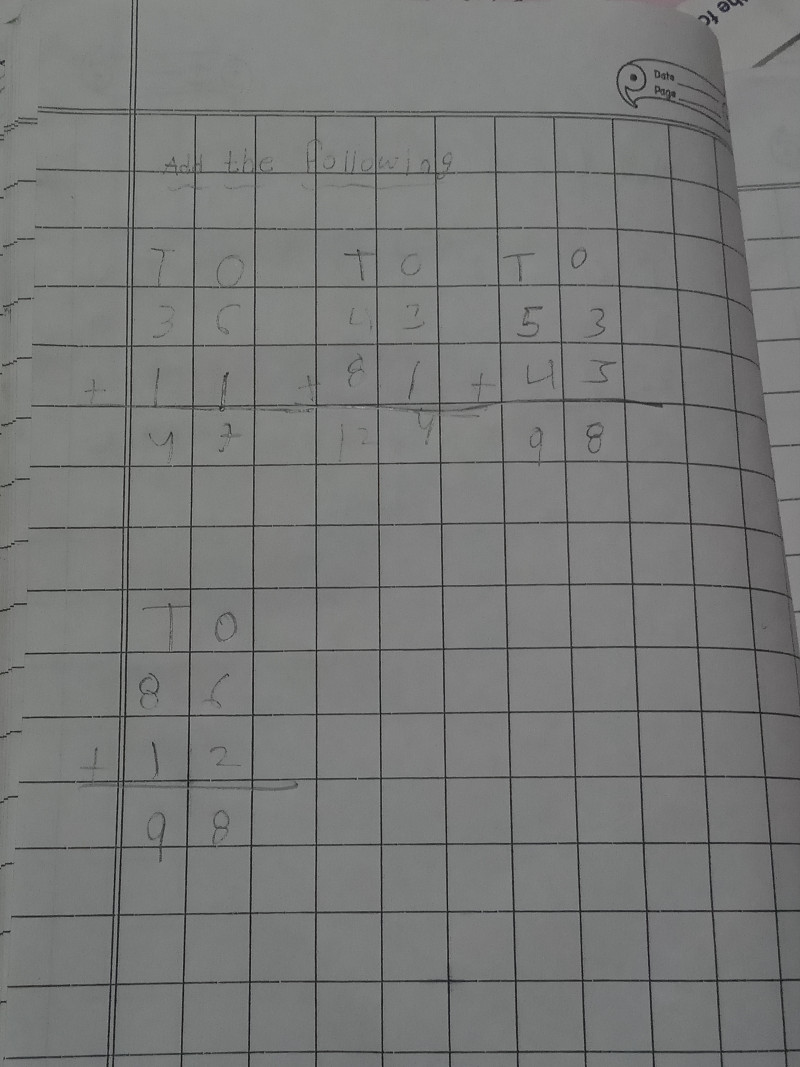 the fo
Date
Page
Add the following
T O T O T O
3 6 4 3 5 3
+ 1 1 + 8 1 + 4 5
4 7 12 4 9 8
T O
8 6
+ 1 2
9 8